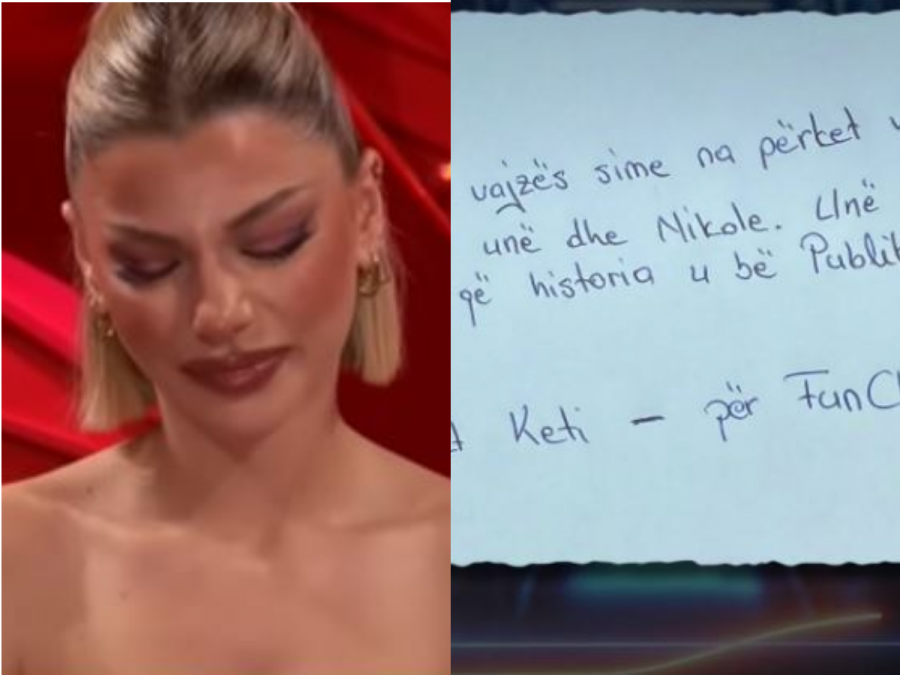 vajzës sime na përket
unë dhe Nikole. Unë
që historia u bë
Keti - për FanC